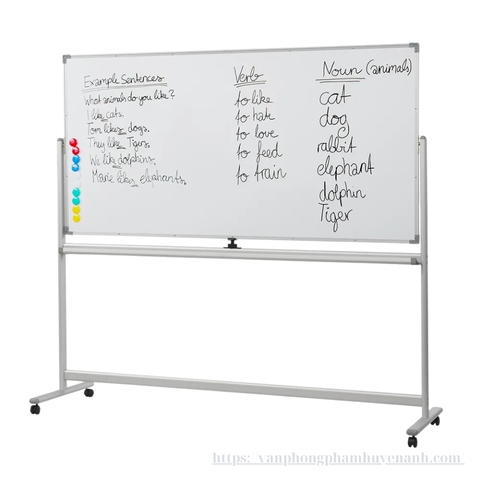 Example Sentences
What animals do you like?
I like cats.
Tom likes dogs.
They like Tigers.
We like dolphins.
Marie likes elephants.
Verb
to like
to hate
to love
to feed
to train
Noun (animals)
cat
dog
rabbit
elephant
dolphin
Tiger
https: vanphongphamhuyenanh.com